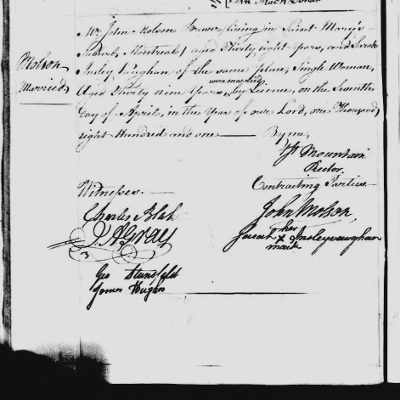 Mr John Molson Brewer, living in Saint Mary's
Suburb, Montreal, aged Thirty eight years, and Sarah
Insley Vaughan of the same place, Single Woman,
were married
Aged Thirty nine Years, by Licence, on the Seventh
Day of April, in the Year of our Lord, one Thousand
eight Hundred and one — By me,
Molson
Married
Jn Mountain
Rector
Witnesses.
Contracting Parties
Charles Blake
John Molson
J. A. Gray
her
Sarah X Insley vaughan
mark
Geo Stansfeld
James Hughes